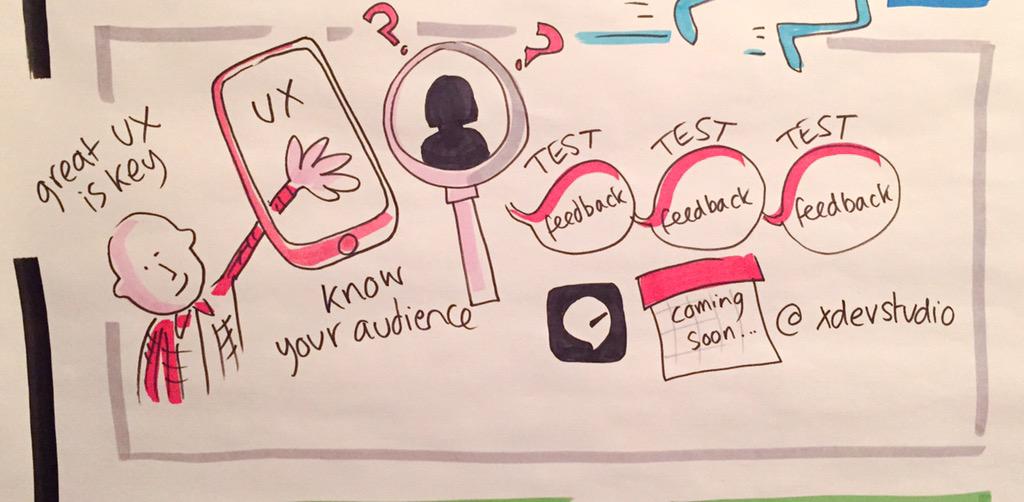 great UX
is key
UX
know
your audience
? ?
TEST TEST TEST
feedback feedback feedback
coming
soon!..
@ xdevstudio